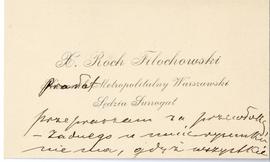 X. Roch Filochowski
Prałat Metropolitalny Warszawski
Sędzia Surrogat
przepraszam za przewłokę
- żadnego u mnie rysunku
nie ma, gdyż wszystkie